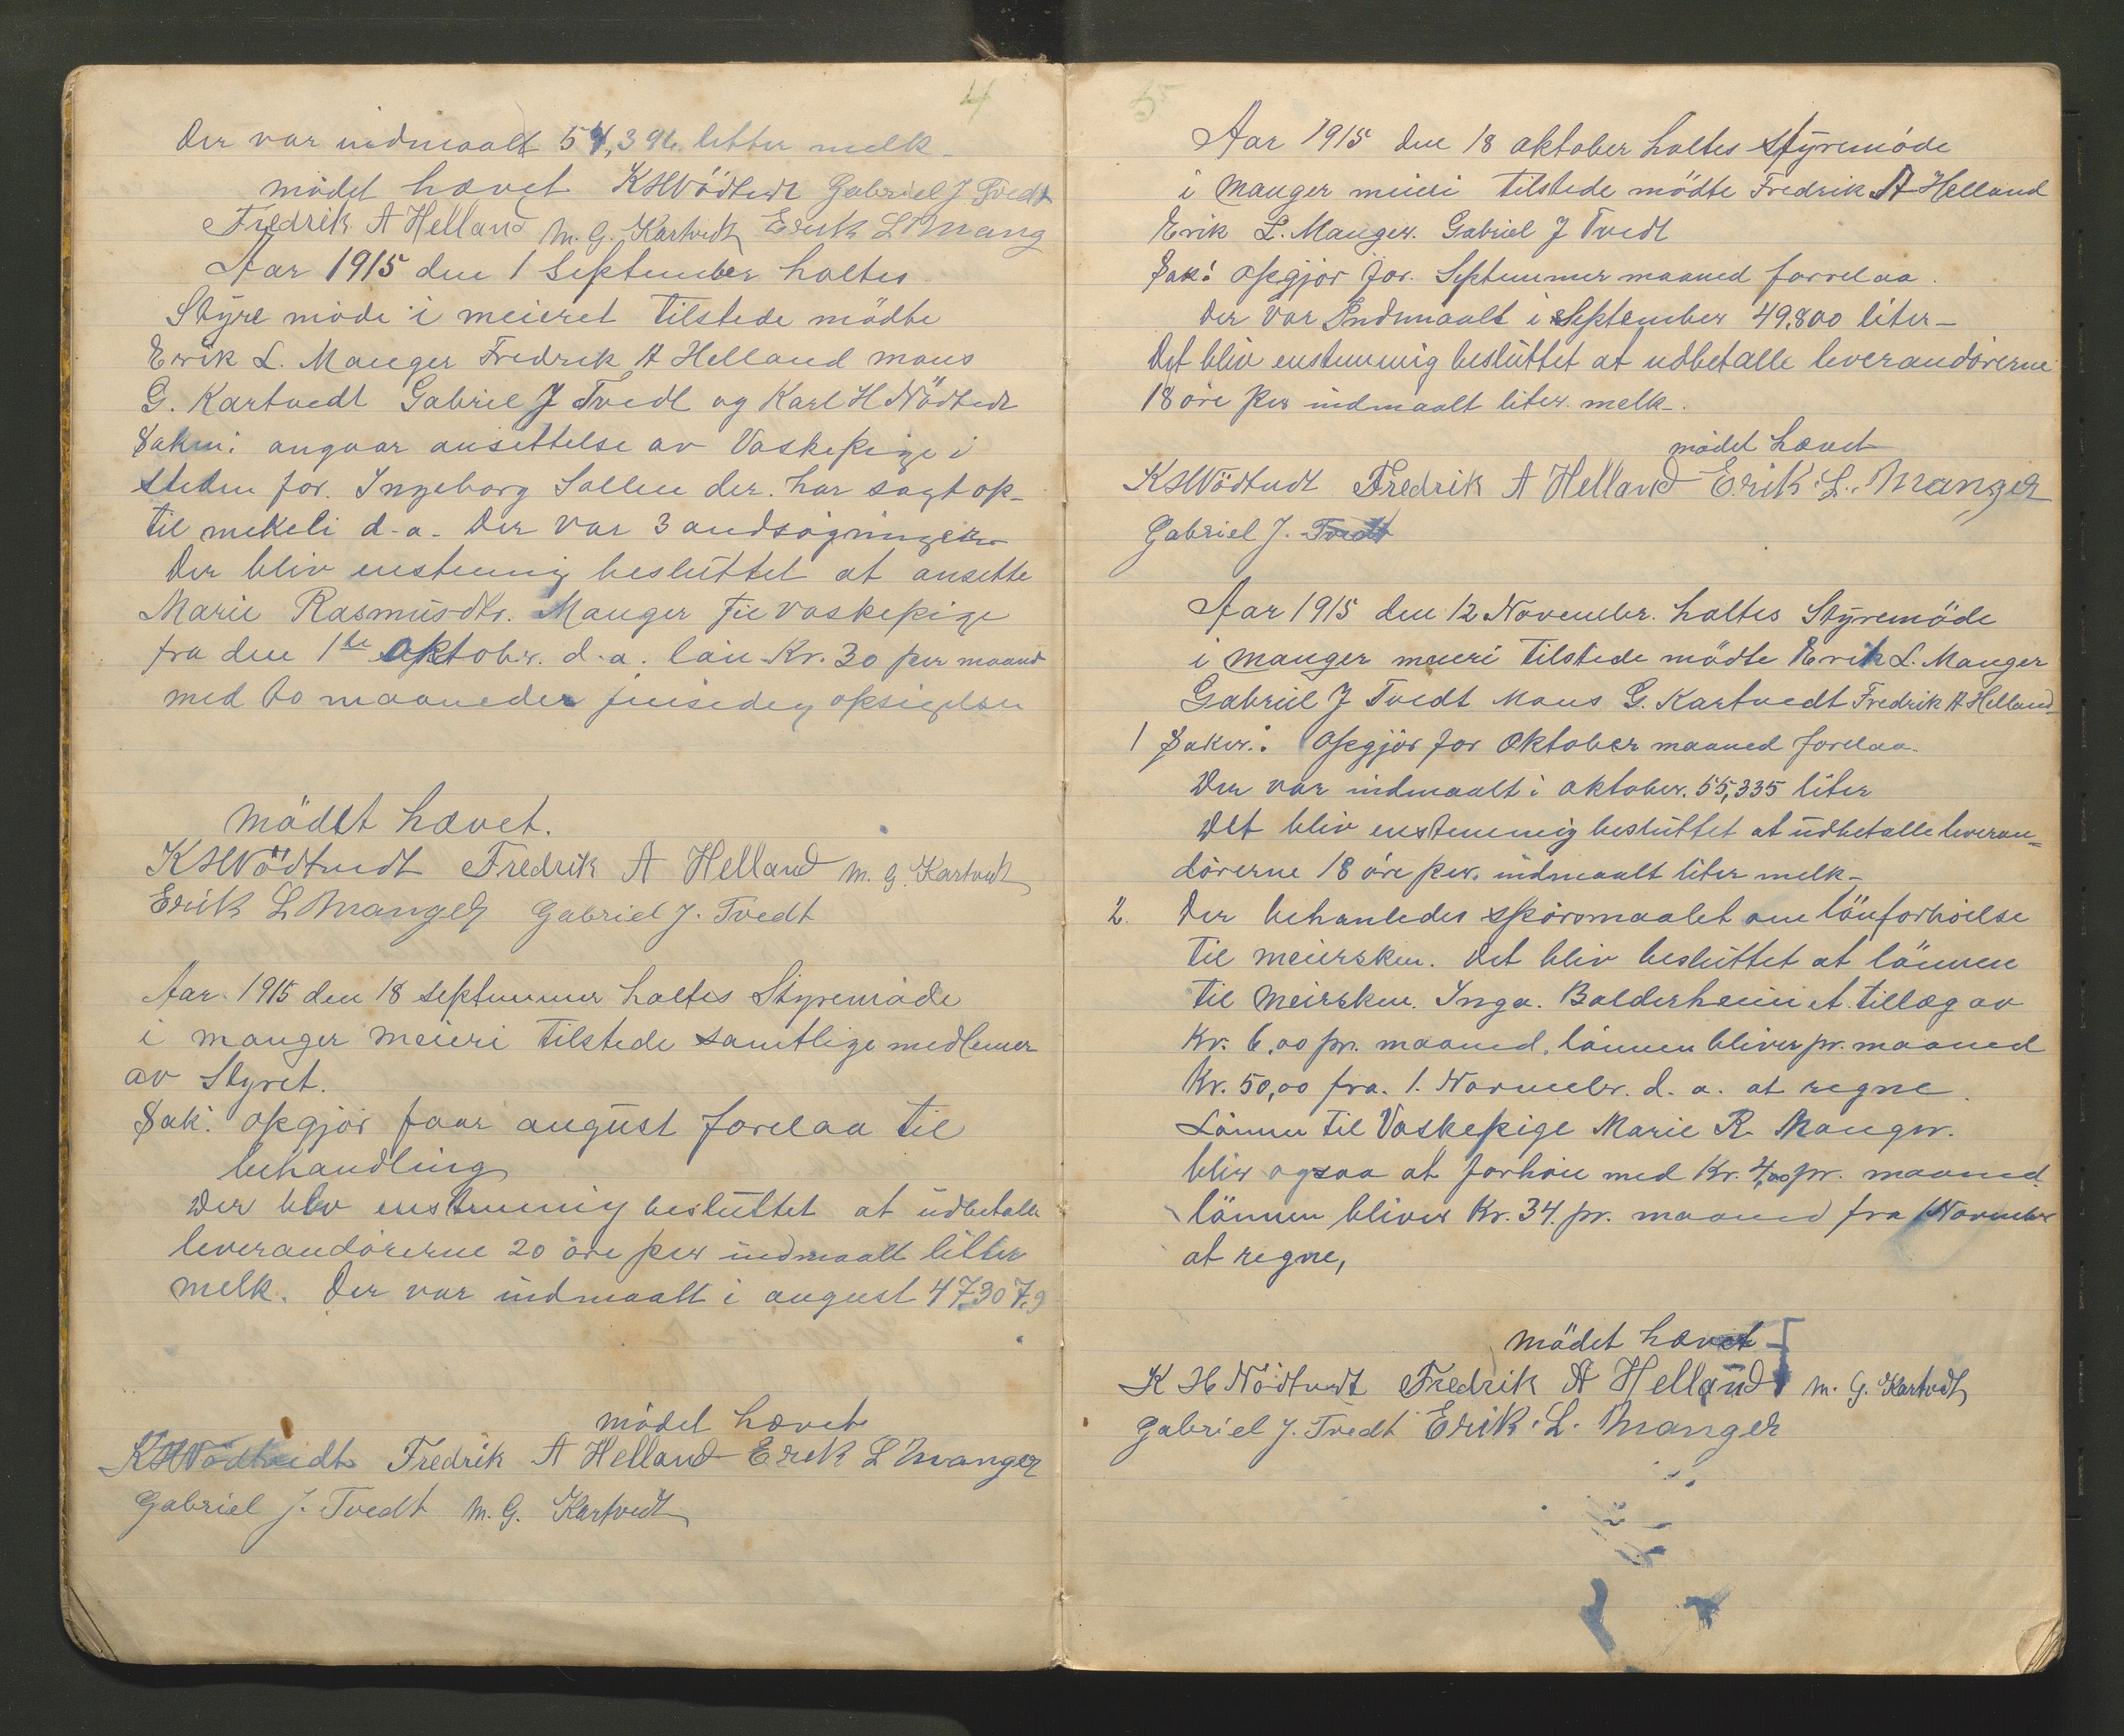 4
Der var indmaalt 54,396 litter melk
mödet hævet KHNödtvedt Gabriel J Tvedt
Fredrik A Helland M. G. Kartvedt Erik L Mang
Aar 1915 den 1 September holtes
Styre möde i meieret tilstede mödte
Erik L. Manger Fredrik A Helland mons
G. Kartvedt Gabriel J Tvedt og Karl H Nödtvedt
Saken: angaar ansettelse av Vaskepige i
steden for. Ingeborg Sollen der. har sagt op-
til mekeli d-a. Der var 3 andsögninger
Der bliv enstemig besluttet at ansette
Marie Rasmusdtr. Manger til vaskepige
fra den 1te Oktober. d.a. lön Kr. 30 per maand
med to maaneder jensedeg opsigelsen
mödet hævet.
KHNödtvedt Fredrik A Helland M. G. Kartvedt
Erik L Manger Gabriel J. Tvedt
Aar 1915 den 18 septemmer holtes Styremöde
i manger meieri tilstede samtlige medlemer
av Styret.
Sak: opgjör faar august forelaa til
behandling
Der blev enstemmig besluttet at udbetale
leverandörerne 20 öre per indmaalt litter
melk. Der var indmaalt i august 47307,9
mödet hævet
KHNödtvedt Fredrik A Helland Erik L Manger
Gabriel J. Tvedt M. G. Kartvedt
5
Aar 1915 den 18 oktober holtes styremöde
i Manger meieri tilstede mödte Fredrik A Helland
Erik L. Manger. Gabriel J Tvedt
Sak: opgjör for. Septemmer maaned forrelaa.
Der var Indmaalt i September 49,800 liter-
Det bliv enstemmig besluttet at udbetalle leverandörerne
18 öre per indmaalt liter. melk-.
mödet hævet
KHNödtvedt Fredrik A Helland Erik. L. Manger
Gabriel J. Tvedt
Aar 1915 den 12 Novembr. holtes Styremöde
i manger meieri tilstede mödte Erik L. Manger
Gabriel J Tvedt Mons G. Kartvedt Fredrik A Helland
1 Saker.: Opgjör for Oktober maaned forelaa.
Der var indmaalt i oktober. 55,335 liter
Det bliv enstemmig besluttet at udbetalle leveran=
dörerne 18 öre per. indmaalt liter melk-
2. Der behanledes spörsmaalet om lönforhöielse
til meiersken. Det bliv besluttet at lönnen
til meirsken. Inga. Balderheim et. tillæg av
Kr. 6,00 pr. maaned. lönnen bliver pr. maaned
Kr. 50,00 fra. 1. Novembr. d. a. at regne.
Lönnen til Vaskepige Marie R. Manger.
bliv ogsaa at forhöie med Kr. 4,00 pr. maaned.
lönnen bliver Kr. 34. pr. maaned fra 1 November
at regne,
mödet hævet
K H Nödtvedt Fredrik A Helland M. G. Kartvedt
Gabriel J. Tvedt Erik. L. Manger